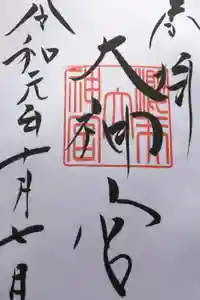 奉拝
大神宮
令和元年十月七日